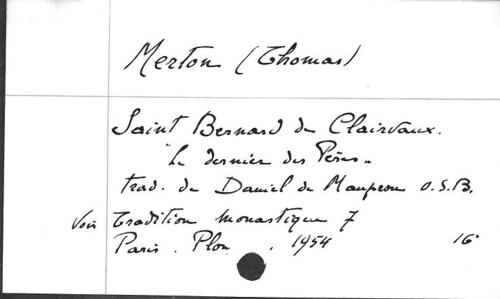 Merton (Thomas)
Saint Bernard de Clairvaux.
"Le dernier des Pères"
trad. de Daniel de Maupeou O.S.B.
Voir Tradition monastique 7
Paris. Plon, 1954 16°